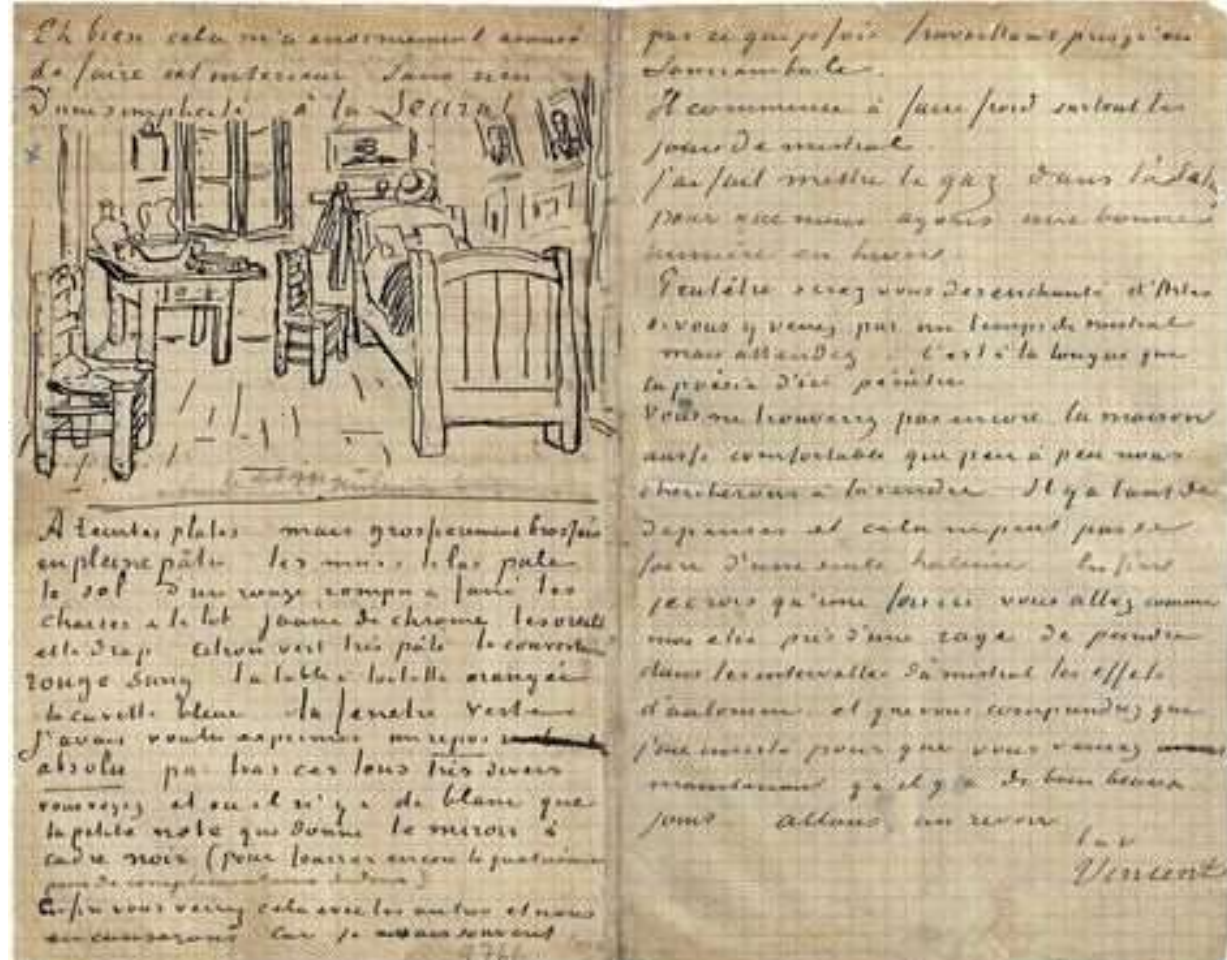 Eh bien cela m'a enormement amusé
de faire cet interieur Sans rien
D'une simplicité à la Seurat
A teintes plates mais grossierement brossées
en pleine pâte les murs lilas pale
le sol d'un rouge rompu & fané les
chaises & le lit jaune de chrome les oreill
et le drap citron vert très pâle la couverture
rouge sang la table à toilette orangée
la cuvette bleue la fenetre verte
J'avais voulu exprimer un repos
absolu par tous ces tons très divers
vous voyez et où il n'y a de blanc que
la petite note que donne le miroir à
cadre noir (pour fourrer encore la quatrième
paire de complémentaires dedans)
Enfin vous verrez cela avec les autres et nous
en causerons car je ne sais souvent
pas ce que je fais travaillant presqu'en
somnambule.
Il commence à faire froid surtout les
jours de mistral.
j'ai fait mettre le gaz dans l'atelier
pour que nous ayons une bonne
lumière en hiver.
Peutêtre serez vous desenchanté d'Arles
si vous y venez par un temps de mistral
mais attendez.. C'est à la longue que
la poésie d'ici pénètre
Vous ne trouverez pas encore la maison
aussi comfortable que peu à peu nous
chercherons à la rendre. Il y a tant de
depenses et cela ne peut pas se
faire d'une seule haleine Enfin
je crois qu'une fois ici vous allez comme
moi etre pris d'une rage de peindre
dans les intervalles du mistral les effets
d'automne et que vous comprendrez que
j'aie insisté pour que vous veniez
maintenant qu'il y a de bien beaux
jours allons, au revoir
t. à v
Vincent